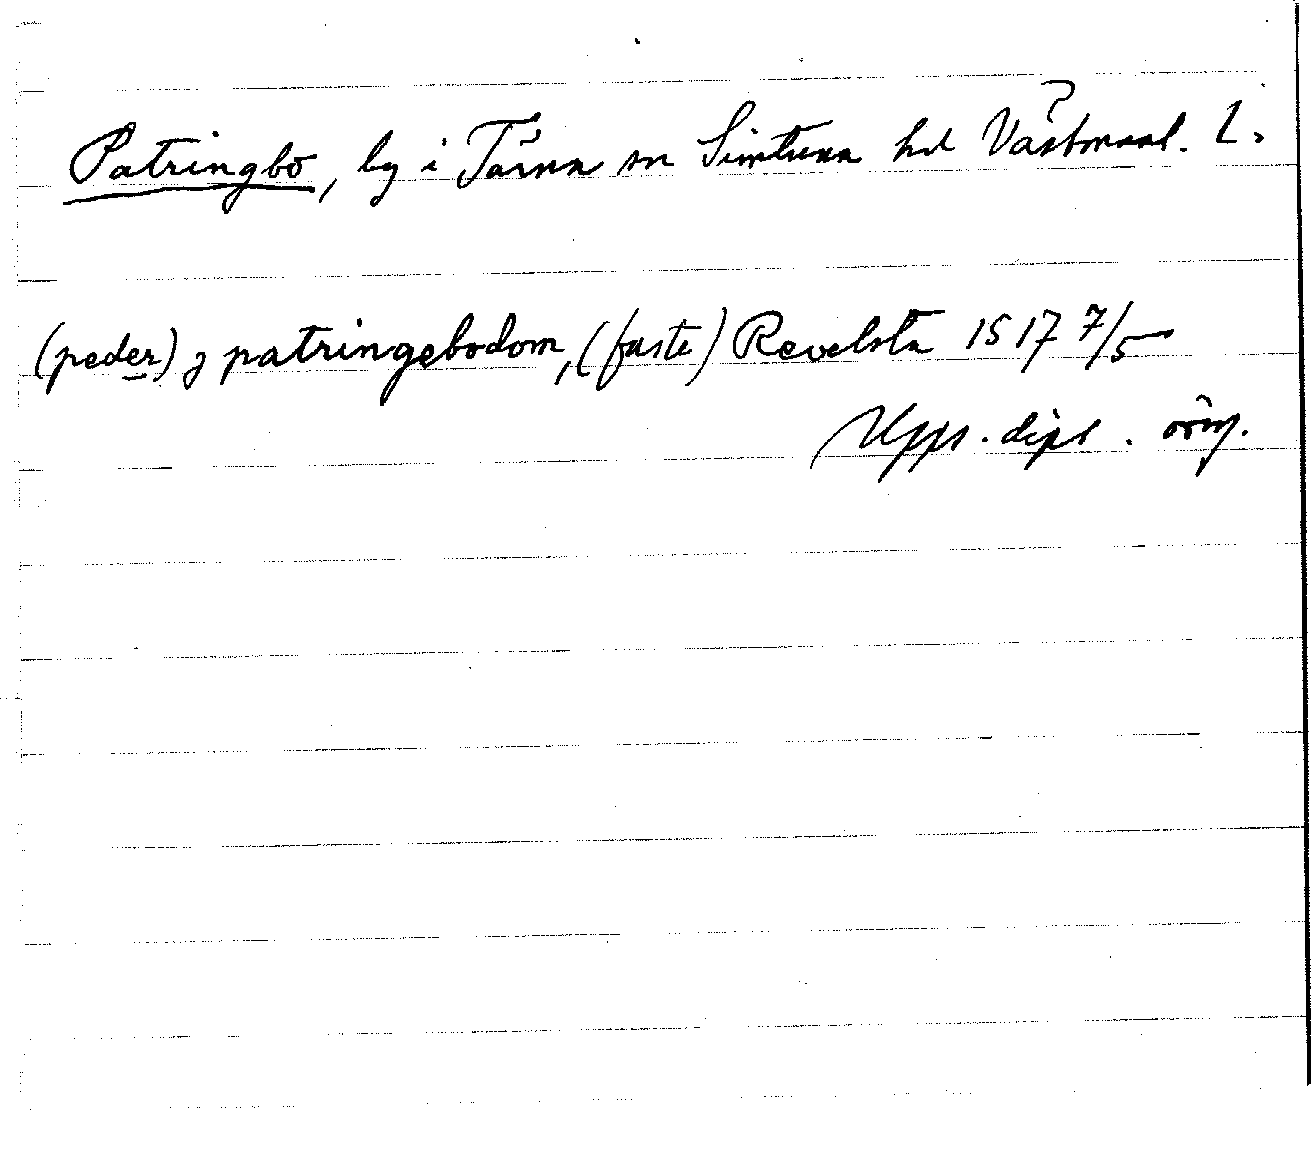 Patringbo, by i Tärna sn Simtuna hd Västmanl. L.
(peder) j patringebodom, (faste) Revelsta 1517 7/5
Upps. dipl. orig.